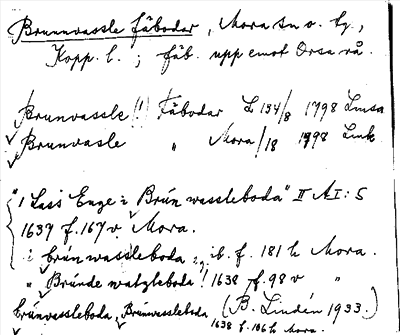 Brunnvassle fäbodar, Mora sn o. tg,
Kopp. l. ; fäb. upp emot Orsa rå.
Brunvassle (!) Fäbodar L 134/8 1798 Lmsa
Brunvasle " Mora/18 1798 Lmk
"1 Lass Enge i Brún wassleboda" II A I: 5
1637 f. 167 v Mora.
i brún wassleboda ib. f. 181 h Mora.
" Brúnde watzleboda! 1638 f. 98 v "
brúnvassleboda, Brúnvassleboda (B. Lindén 1933.)
1638 f. 106 h Mora.